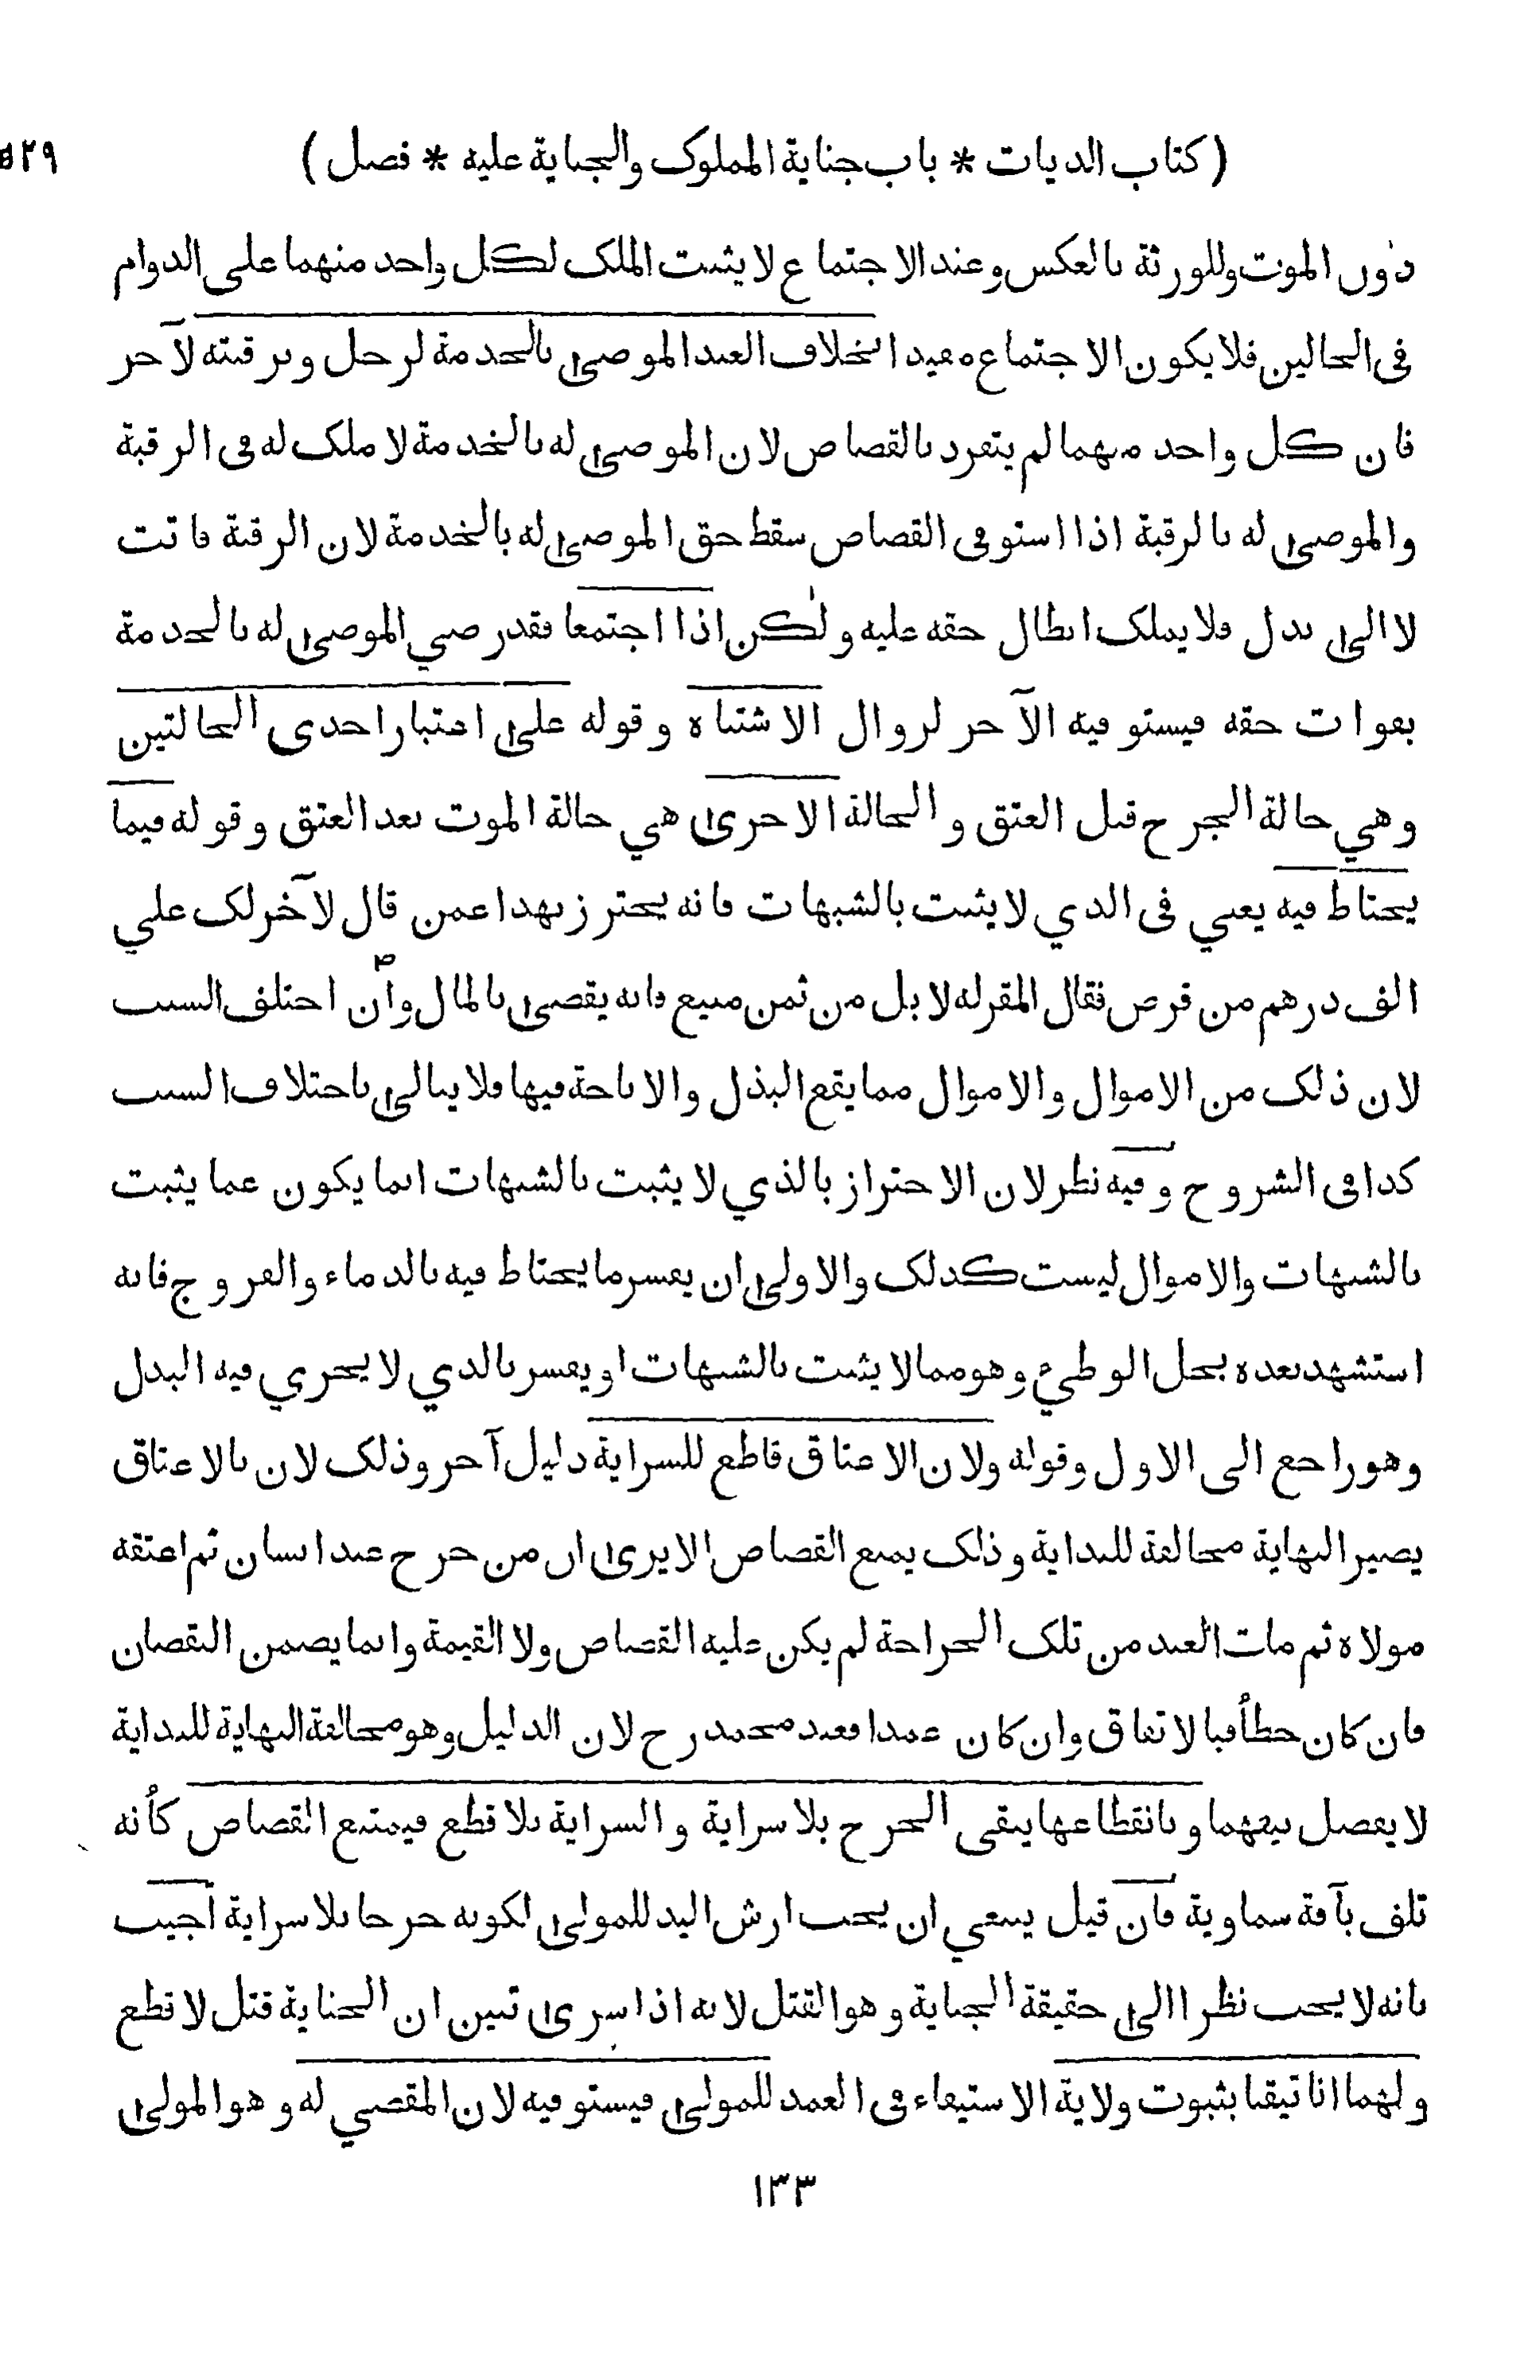 (كتاب الديات * باب جناية المملوك والجناية عليه * فصل) ٥٢٩
دون الموت وللورثة بالعكس وعند الاجتماع لا يثبت الملك لكل واحد منهما على الدوام
في الحالين فلا يكون الاجتماع مفيدا بخلاف العبد الموصى بالخدمة لرجل وبرقبته لآخر
فان كل واحد منهما لم يتفرد بالقصاص لان الموصى له بالخدمة لا ملك له في الرقبة
والموصى له بالرقبة اذا استوفى القصاص سقط حق الموصى له بالخدمة لان الرقبة فاتت
لا الى بدل فلا يملك ابطال حقه عليه ولكن اذا اجتمعا فقد رضي الموصى له بالخدمة
بفوات حقه فيستوفيه الآخر لزوال الاشتباه وقوله على اعتبار احدى الحالتين
وهي حالة الجرح قبل العتق والحالة الاخرى هي حالة الموت بعد العتق وقوله فيما
يحتاط فيه يعني في الذي لا يثبت بالشبهات فانه يحترز بهذا عمن قال لآخر لك علي
الف درهم من قرض فقال المقر له لا بل من ثمن مبيع فانه يقضى بالمال وان اختلف السبب
لان ذلك من الاموال والاموال مما يقع البذل والاباحة فيها فلا يبالى باختلاف السبب
كذا في الشروح وفيه نظر لان الاحتراز بالذي لا يثبت بالشبهات انما يكون عما يثبت
بالشبهات والاموال ليست كذلك والاولى ان يفسر ما يحتاط فيه بالدماء والفروج فانه
استشهد بعده بحل الوطيء وهو مما لا يثبت بالشبهات او يفسر بالذي لا يجري فيه البدل
وهو راجع الى الاول وقوله ولان الاعتاق قاطع للسراية دليل آخر وذلك لان بالاعتاق
يصير النهاية مخالفة للبداية وذلك يمنع القصاص الا يرى ان من جرح عبد انسان ثم اعتقه
مولاه ثم مات العبد من تلك الجراحة لم يكن عليه القصاص ولا القيمة وانما يضمن النقصان
فان كان خطأ فبالاتفاق وان كان عمدا فعند محمد رح لان الدليل وهو مخالفة النهاية للبداية
لا يفصل بينهما وبانقطاعها يبقى الجرح بلا سراية والسراية بلا قطع فيمتنع القصاص كأنه
تلف بآفة سماوية فان قيل ينبغي ان يجب ارش اليد للمولى لكونه جرحا بلا سراية اجيب
بانه لا يجب نظرا الى حقيقة الجناية وهو القتل لانه اذا سرى تبين ان الجناية قتل لا قطع
ولهما انا تيقنا بثبوت ولاية الاستيفاء في العمد للمولى فيستوفيه لان المقضي له وهو المولى
١٣٣